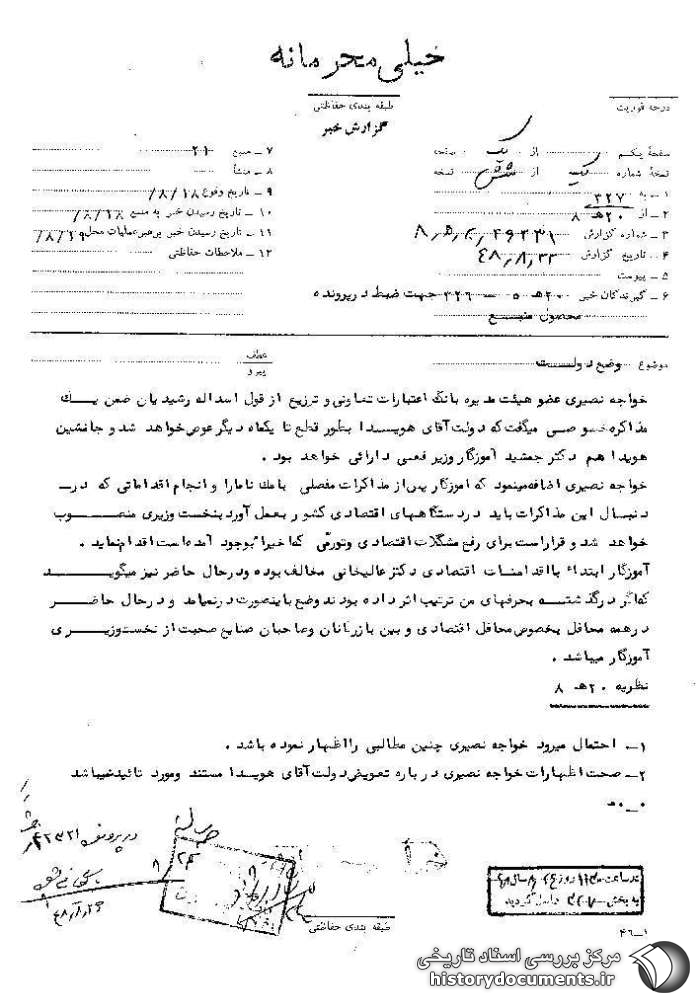 خیلی محرمانه
طبقه بندی حفاظتی
درجه فوریت
گزارش خبر
صفحهٔ یکم از یک صفحه
نسخهٔ شماره یک از شش نسخه
۱ـ به ۳۲۷
۲ـ از ۲۰هـ ۸
۳ـ شماره گزارش
۴ـ تاریخ گزارش ۴۸٫۸٫۲۲
۵ـ پیوست
۶ـ گیرندگان خبر ۲۰هـ ۵ ـ ۳۲۶ جهت ضبط در پرونده
محصول منبع
۷ـ منبع ۲۱
۸ـ منشأ
۹ـ تاریخ وقوع ۸/۱۸/
۱۰ـ تاریخ رسیدن خبر به منبع ۸/۱۸/
۱۱ـ تاریخ رسیدن خبر برهبر عملیات محل ۸/۱۹/
۱۲ـ ملاحظات حفاظتی
موضوع وضع دولت
عطف
پیرو
خواجه نصیری عضو هیئت مدیره بانک اعتبارات تعاونی و توزیع از قول اسداله رشیدیان ضمن یک
مذاکره خصوصی میگفت که دولت آقای هویدا بطور قطع تا یکماه دیگر عوض خواهد شد و جانشین
هویدا هم دکتر جمشید آموزگار وزیر فعلی دارائی خواهد بود .
خواجه نصیری اضافه مینمود که آموزگار پس از مذاکرات مفصلی با مک نامارا و انجام اقداماتی که در
دنبال این مذاکرات باید در دستگاههای اقتصادی کشور بعمل آورد بنخست وزیری منصوب
خواهد شد و قرار است برای رفع مشکلات اقتصادی و تورمی که اخیرا بوجود آمده است اقدام نماید .
آموزگار ابتداء با اقدامات اقتصادی دکتر عالیخانی مخالف بوده و در حال حاضر نیز میگوید
که اگر در گذشته بحرفهای من ترتیب اثر داده بودند وضع باینصورت در نمیامد و در حال حاضر
در همه محافل بخصوص محافل اقتصادی و بین بازرگانان و صاحبان صنایع صحبت از نخست وزیری
آموزگار میباشد .
نظریه ۲۰هـ ۸
۱ـ احتمال میرود خواجه نصیری چنین مطالبی را اظهار نموده باشد .
۲ـ صحت اظهارات خواجه نصیری درباره تعویض دولت آقای هویدا مستند و مورد تائید نمیباشد
در پرونده ۴۲۳۲۱
بخش
داخل گردید
طبقه بندی حفاظتی
۱ـ۴۶
مرکز بررسی اسناد تاریخی
historydocuments.ir